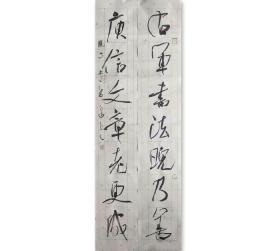 右军书法晚乃善
庾信文章老更成